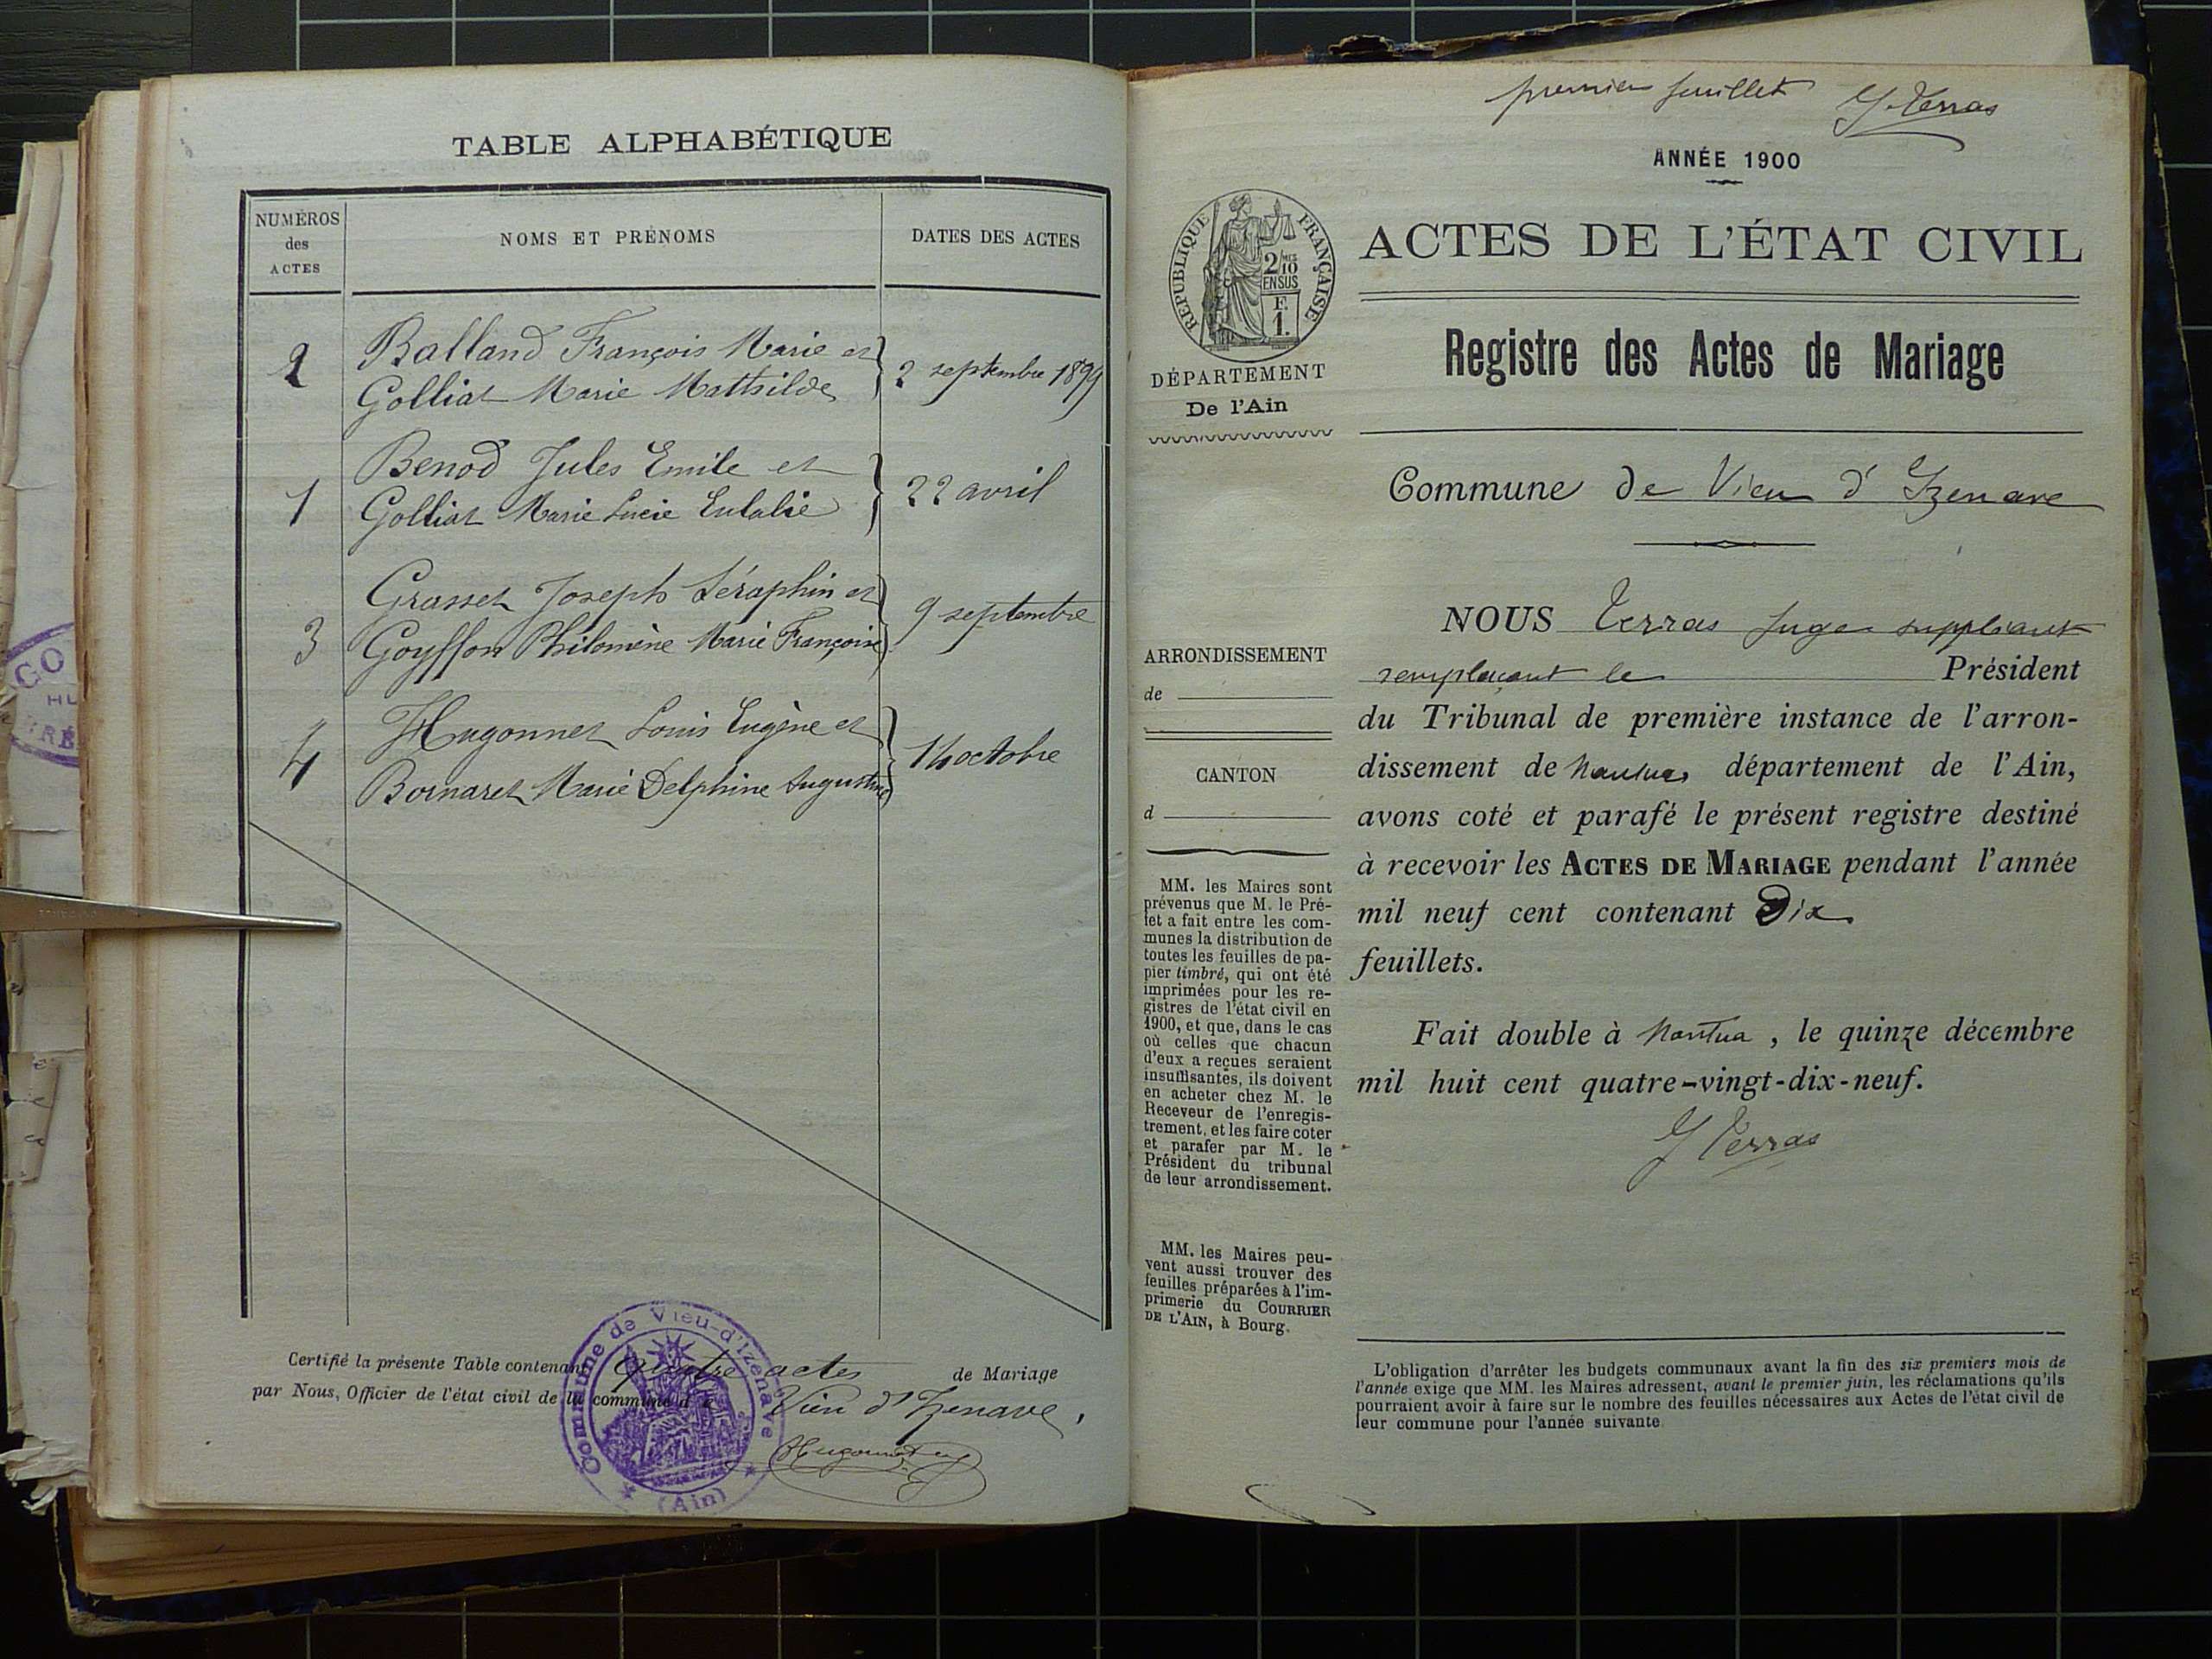 TABLE ALPHABÉTIQUE
NUMÉROS des ACTES
NOMS ET PRÉNOMS
DATES DES ACTES
2
Balland François Marie et
Golliat Marie Mathilde
2 septembre 1899
1
Benod Jules Emile et
Golliat Marie Lucie Eulalie
22 avril
3
Grasset Joseph Séraphin et
Goyffon Philomène Marie Françoise
9 septembre
4
Hugonnet Louis Eugène et
Bornaret Marie Delphine Augustine
14 octobre
Certifié la présente Table contenant quatre actes de Mariage
par Nous, Officier de l'état civil de la commune de Vieu d'Izenave,
Hugonnet
Commune de Vieu-d'Izenave
(Ain)
premier feuillet G. Terras
ANNÉE 1900
RÉPUBLIQUE FRANÇAISE
2/10
EN SUS
F.
1.
DÉPARTEMENT
De l'Ain
ACTES DE L'ÉTAT CIVIL
Registre des Actes de Mariage
Commune de Vieu d'Izenave
ARRONDISSEMENT
de
CANTON
d
MM. les Maires sont
prévenus que M. le Pré-
fet a fait entre les com-
munes la distribution de
toutes les feuilles de pa-
pier timbré, qui ont été
imprimées pour les re-
gistres de l'état civil en
1900, et que, dans le cas
où celles que chacun
d'eux a reçues seraient
insuffisantes, ils doivent
en acheter chez M. le
Receveur de l'enregis-
trement, et les faire coter
et parafer par M. le
Président du tribunal
de leur arrondissement.
MM. les Maires peu-
vent aussi trouver des
feuilles préparées à l'im-
primerie du COURRIER
DE L'AIN, à Bourg.
NOUS Terras Juge suppléant
remplaçant le Président
du Tribunal de première instance de l'arron-
dissement de Nantua, département de l'Ain,
avons coté et parafé le présent registre destiné
à recevoir les ACTES DE MARIAGE pendant l'année
mil neuf cent contenant Dix
feuillets.
Fait double à Nantua, le quinze décembre
mil huit cent quatre-vingt-dix-neuf.
G Terras
L'obligation d'arrêter les budgets communaux avant la fin des six premiers mois de
l'année exige que MM. les Maires adressent, avant le premier juin, les réclamations qu'ils
pourraient avoir à faire sur le nombre des feuilles nécessaires aux Actes de l'état civil de
leur commune pour l'année suivante.